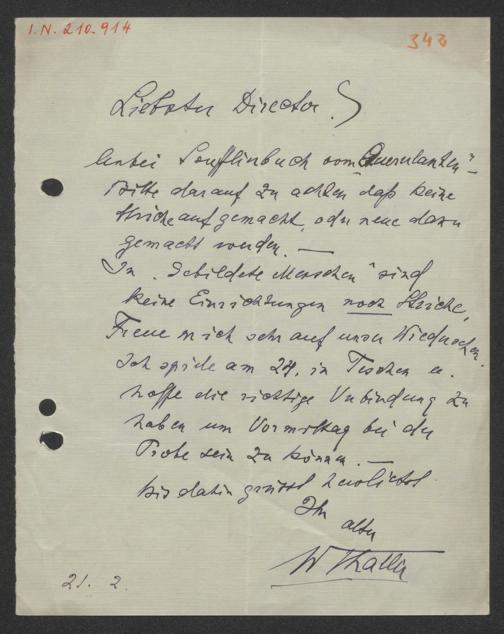 I.N. 210.914
343
Liebster Director!
Anbei Soufflirbuch vom „Querulanten" -
Bitte darauf zu achten daß keine
Striche aufgemacht, oder neue dazu
gemacht werden. —
In „Gebildete Menschen" sind
keine Einrichtungen noch Striche,
Freue mich sehr auf unser Wiedersehen.
Ich spiele am 24. in Teschen u.
hoffe die richtige Verbindung zu
haben um Vormittag bei der
Probe sein zu können. —
Bis dahin grüsst herzlichst
Ihr alter
W Thaller
21. 2.